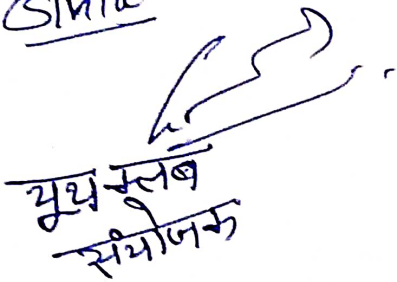 यूथ क्लब
संयोजक